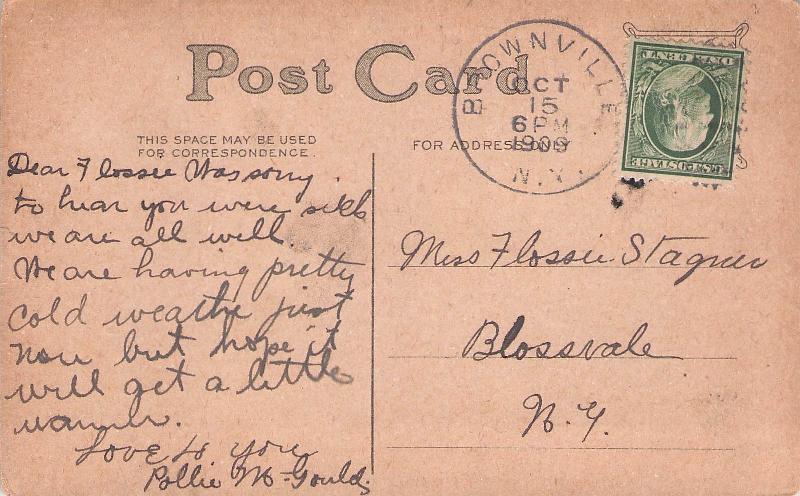 Post Card
BROWNVILLE
OCT
15
6 PM
1909
N.Y.
ONE CENT
U.S. POSTAGE
THIS SPACE MAY BE USED
FOR CORRESPONDENCE.
FOR ADDRESS ONLY
Dear Flossie Was sorry
to hear you were sick
we are all well.
We are having pretty
cold weathe just
now but hope it
will get a little
warmer.
Love to you
Pollie M-Gould
Miss Flossie Stagner
Blossvale
N.Y.